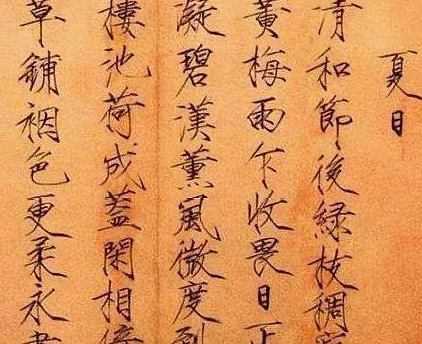 夏日
清和節後緑枝稠
黄梅雨乍收畏日
凝碧漢薰風微度到
樓池荷成蓋閑相
草舖裀色更柔永